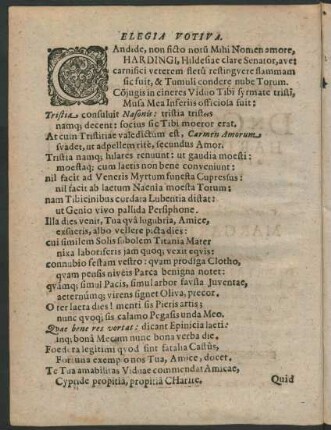 ELEGIA VOTIVA.
CAndide, non ficto notũ Mihi Nomen amore,
HARDINGI, Hildesiae clare Senator, ave;
carnifici veterem fletũ restingvere flammam
sic fuit, & Tumuli condere nube Torum.
Cõjugis in cineres Viduo Tibi syrmate tristi,
Musa Mea Inferiis officiosa fuit:
Tristia consuluit Nasonis: tristia tristes
namq; decent: socius sic Tibi moeror erat.
At cuin Tristitiae valedictum est, Carmen Amorum
svadet, ut adpellem rite, secundus Amor.
Tristia namq; hilares renuunt: ut gaudia moesti:
moestaq; cum laetis non bene conveniunt:
nil facit ad Veneris Myrtum funesta Cupressus:
nil facit ab laetum Naenia moesta Torum:
nam Tibicinibus cordara Lubentia distat:
ut Genio vivo pallida Persiphone.
Illa dies venit, Tua qvâ lugubria, Amice,
exsueris, albo vellere picta dies:
cui similem Solis sobolem Titania Mater
nixa laboriferis jam quoq; vexit eqvis:
connubio festam vestro: qvam prodiga Clotho,
qvam pensis niveis Parca benigna notet:
qvamq; simul Pacis, simul arbor favsta Juventae,
aeternumq; virens signet Oliva, precor.
O ter laeta dies! menti sis Pieris artis;
nunc qvoq; sis calamo Pegasis unda Meo.
Quae bene res vertat: dicant Epinicia laeti:
inq; bonâ Mecum nunc bona verba die.
Foedera legitimi qvod sint fatalia Castûs,
Fortuna exemplo nos Tua, Amice, docet.
Te Tua amabilitas Viduae commendat Amicae,
Cypride propitiâ, propitiâ CHarite,
Quid